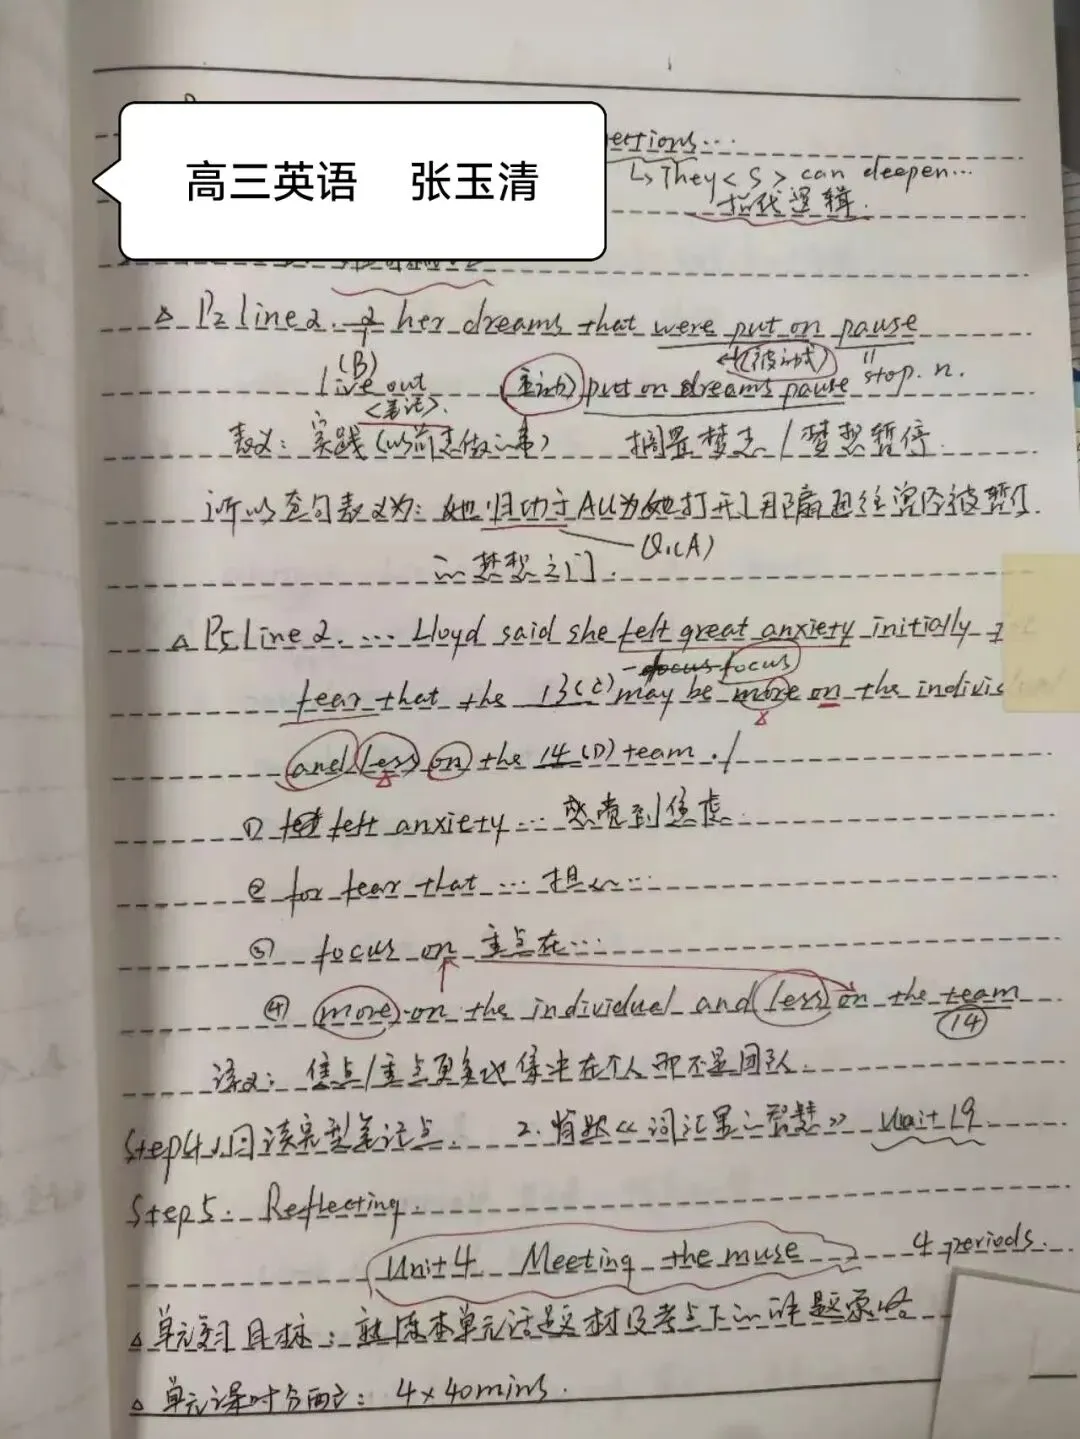 高三英语 张玉清
ections...
↳ They<S> can deepen...
指代逻辑.
△ P2 line 2. her dreams that were put on pause
(B) (被动式) =
live out 主动 put on dreams pause stop. n.
<美语>.
表义: 实践(以前想做的事) 搁置梦想/梦想暂停.
所以全句表义为: 她归功于AU为她打开了那扇通往曾经被暂停
Q1(A)
的梦想之门.
△ P5 line 2. ... Lloyd said she felt great anxiety initially
- focus
fear that the 13(C) may be more on the individual
and less on the 14(D) team.
① felt anxiety... 感觉到焦虑.
② for fear that... 担心...
③ focus on 重点在...
④ more on the individual and less on the team
14
译义: 焦点/重点更多地集中在个人而不是团队.
Step4.1.回读完型笔记点. 2. 背默《词汇里的智慧》 Unit 19
Step5. Reflecting.
Unit 4 Meeting the muse 4 periods.
△ 单元复习目标: 熟练本单元话题文材及考点下的解题策略
△ 单元课时分配: 4×40mins.